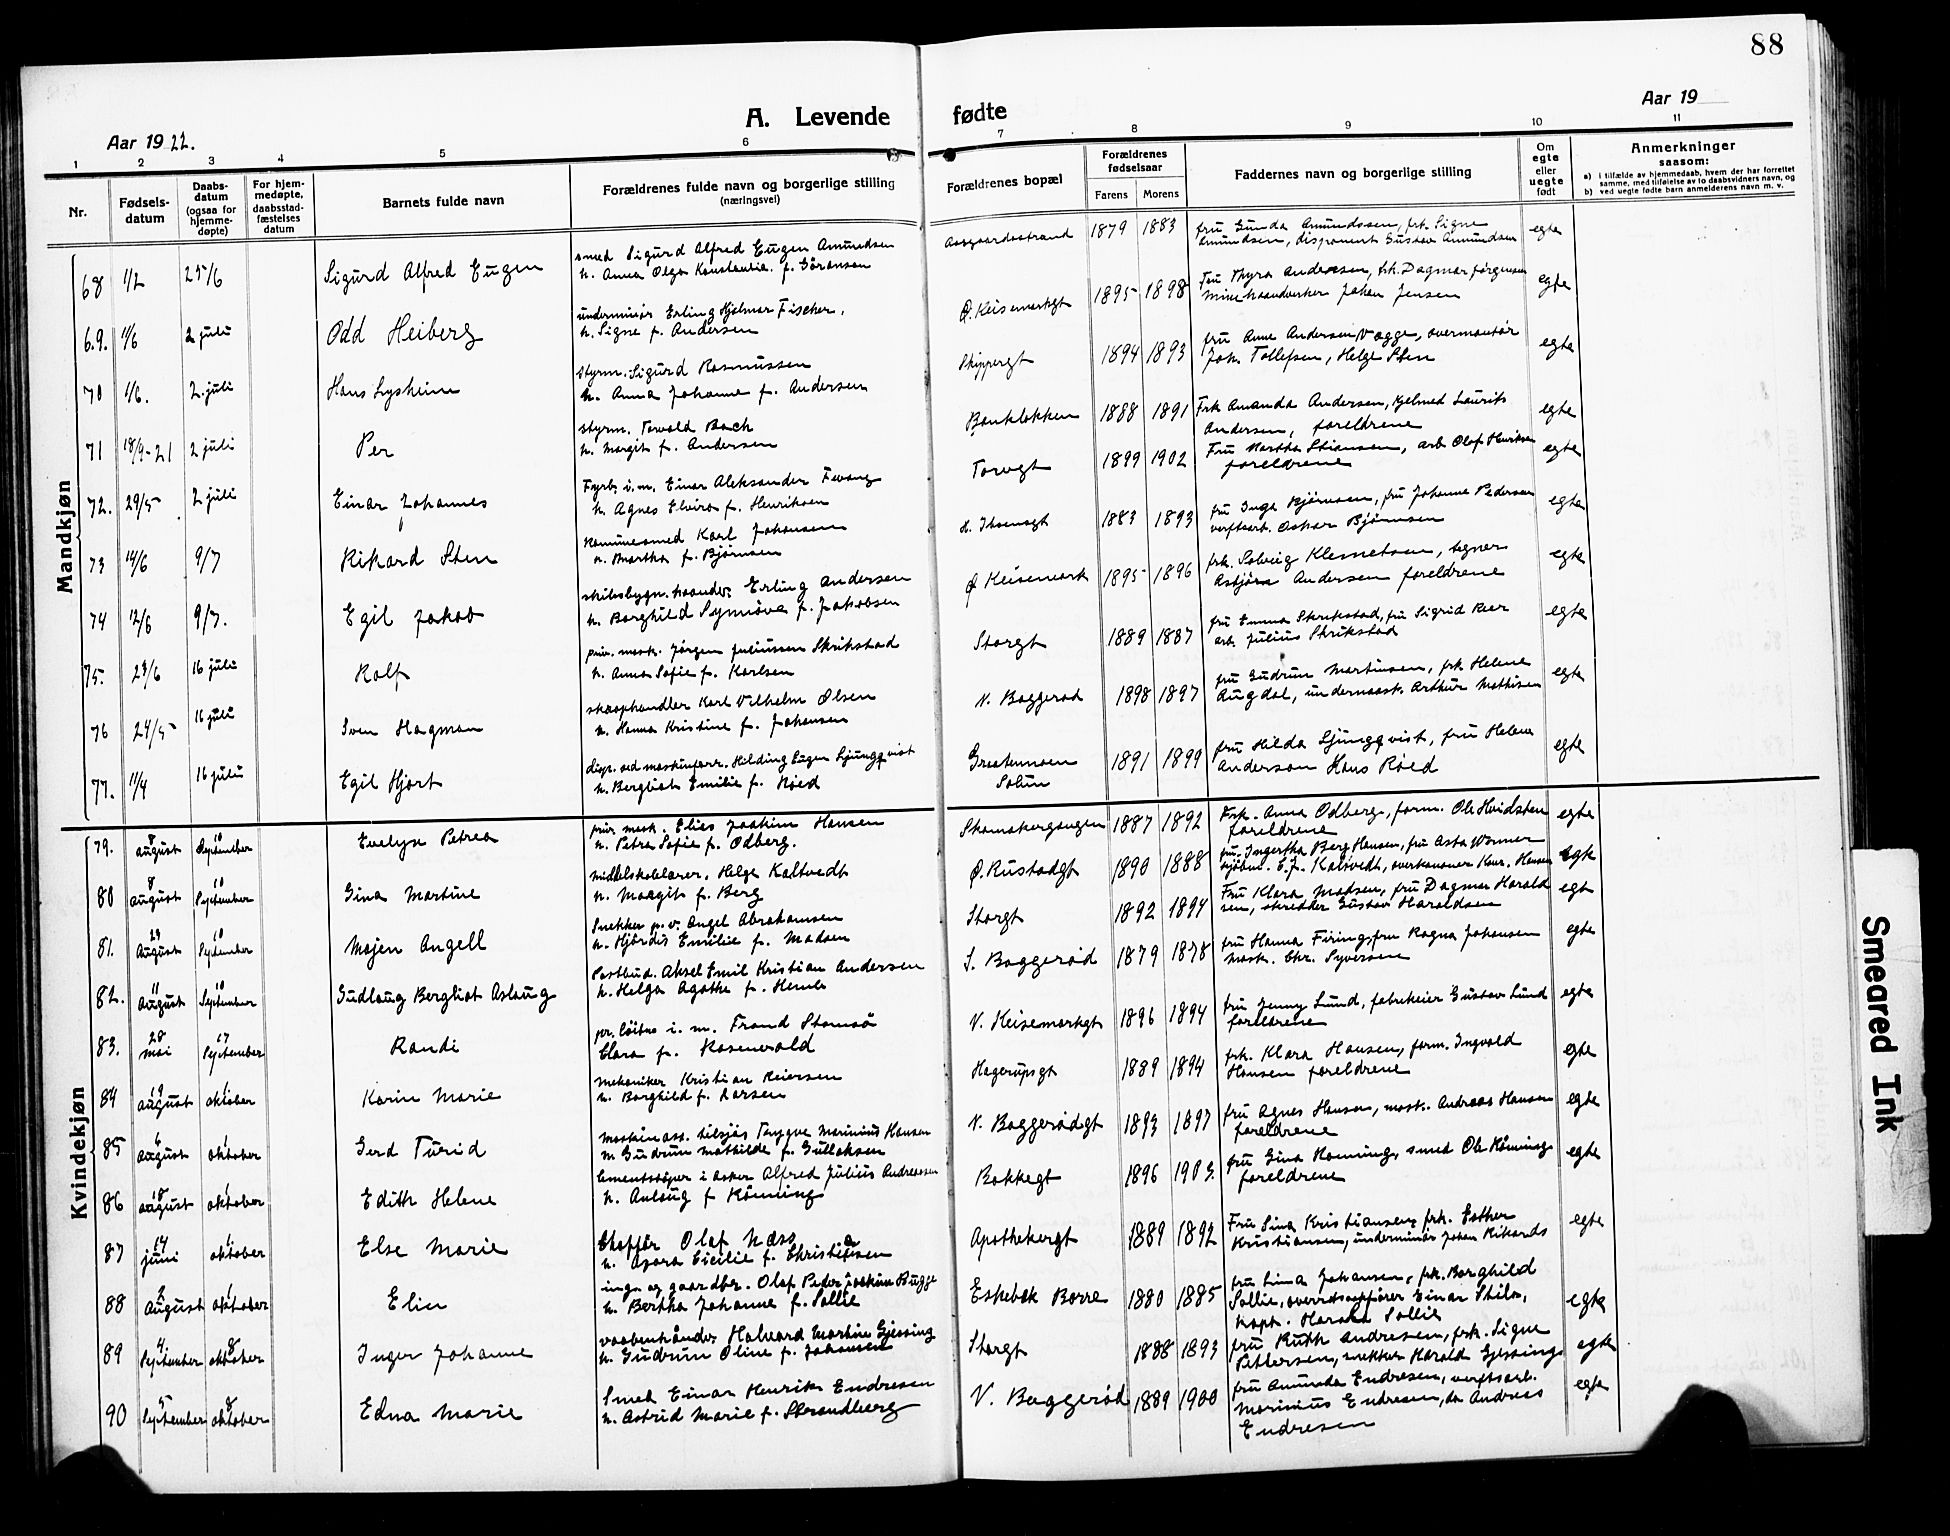 88
A. Levende fødte
Aar 1922.
Aar 19
1 2 3 4 5 6 7 8 9 10 11
Nr.
Fødsels-
datum
Daabs-
datum
(ogsaa for
hjemme-
døpte)
For hjem-
medøpte,
daabsstad-
fæstelses
datum
Barnets fulde navn
Forældrenes fulde navn og borgerlige stilling
(næringsvei)
Forældrenes bopæl
Forældrenes
fødselsaar
Farens Morens
Faddernes navn og borgerlige stilling
Om
egte
eller
uegte
født
Anmerkninger
saasom:
a) i tilfælde av hjemmedaab, hvem der har forrettet
samme, med tilføielse av to daabsvidners navn, og
b) ved uegte fødte barn anmelderens navn m. v.
Mandkjøn
68 1/2 25/6 Sigurd Alfred Eugen
smed Sigurd Alfred Eugen Amundsen
h. Anna Olga Konstantie f. Göranson
Aasgaardsstrand 1879 1883
fru Gunda Amundssen, frk. Signe
Amundsen, disponent Gustav Amundsen
egte
69. 11/6 2 juli Odd Heiberg
underminør Erling Hjalmar Fischer,
h. Signe f. Andersen
Ø. Keisemarkgt 1895 1898
Fru Thyra Andersen, frk. Dagmar Jørgensen
Johan Jensen
egte
70 1/6. 2 juli Hans Lysheim
styrm. Sigurd Rasmussen
h. Anna Johanne f. Andersen
Skippergt 1894 1893
fru Anne Andersen Vagge, overmontør
Joh. Tollefsen, Helge Sten
egte
71 18/9-21 2 juli Per
styrm. Torvald Bach
h. Margit f. Andersen
Bankløkken 1888 1891
Frk Amanda Andersen, Laurits
Andersen, foreldrene
egte
72. 29/5 2 juli Einar Johannes
Fyrb. i. m. Einar Aleksander Fevang
h. Agnes Elvira f. Henriksen
Torvgt 1899 1902
Fru Martha Stiansen, arb Olaf Henriksen
foreldrene
egte
73 14/6 9/7 Rikard Sten
Karl Johansen
h. Martha f. Bjørnsen
1883 1893
fru Inga Bjørnsen, fru Johanne Pedersen
verftsarb. Oskar Bjørnsen
egte
74 12/6 9/7. Egil Jakob
skibsbygn. haandv. Erling Andersen
h. Borghild Synnøve f. Jakobsen
Ø Keisemark 1895 1896
frk. Solveig Klemetsen, tegner
Asbjørn Andersen foreldrene
egte
75. 23/6 16 juli Rolf
priv. mask. Jørgen Juliussen Skrikstad
h. Anna Sofie f. Karlsen
Storgt 1889 1887
fru Emma Skrikstad, fru Sigrid Reer
arb. Julius Skrikstad
egte
76 24/5 16 juli Sven Hagman
skraphandler Karl Vilhelm Olsen
h. Hanna Kristine f. Johansen
N. Baggerød 1898 1897
fru Gudrun Martinsen, frk. Helene
Augdal, undermask. Arthur Mathisen
egte
77. 11/4 16 juli Egil Hjort
disp. ved maskinforr. Hilding Eugen Ljungqvist
h. Bergliot Emilie f. Røed
Greetennoen
Solun 1891 1899
fru Hilda Ljungqvist, fru Helene
Anderson Hans Røed
egte
Kvindekjøn
79. 8 august 10 September Evelyn Petrea
priv. mask. Elias Joakim Hansen
h. Petra Sofie f. Odberg.
Skomakergangen 1887 1892
Frk. Anna Odberg, form. Ole Hvidsten
foreldrene
egte
80 8 august 10 September Gina Martine
middelskolelærer. Helge Kaltvedt
h. Maagit f. Berg
Ø. Rustadgt 1890 1888
fru. Ingertha Berg Hansen, fru Asta Wormer
E.J. Kaltvedt, overkanoner Knr. Hansen
egte
81. 29 August 10 September Majen Angell
Snekker p. v. Angel Abrahamsen
h. Hjørdis Emilie f. Madsen
Storgt 1892 1894
Fru Klara Madsen, fru Dagmar Harald
sen, skredder Gustav Haraldsen
egte
82. 11 August 10 September Gudlaug Bergliot Aslaug
Postbud. Aksel Emil Kristian Andersen
h. Helga Agathe f. Hemb
S. Baggerød 1879 1878
fru Hanna Firing, fru Ragna Johansen
mask. Chr. Syversen
egte
83. 28 mai 17 September Randi
pr. løitn. i. m. Frand Stamsø
Clara f. Rosenvold
V. Keisemarkgt 1896 1894
fru Jenny Lund, fabrikeier Gustav Lund
foreldrene
egte
84 19 august 1 oktober Karin Marie
Mekaniker Kristian Reiersen
h. Borghild f. Larsen
Hagerupsgt 1889 1894
frk. Klara Hansen, form. Ingvald
Hansen foreldrene
egte
85 6 august 1 oktober Gerd Turid
maskinass. tilsjøs Trygve Marinius Hansen
h. Gudrun Mathilde f. Gulliksen
V. Baggerødgt 1893 1897
fru Agnes Hansen, mask. Andreas Hansen
foreldrene
egte
86 18 august 1 oktober Edith Helene
Cementstøper i Asker Alfred Julius Andreassen
h. Aslaug f Rönning
Bakkegt 1896 1903.
fru Gina Rönning, smed Ole Rönning
foreldrene
egte
87 14 juni 1 oktober Else Marie
Chaffør Olaf Næss
h. Agora Cicilie f. Christensen
Apothekergt 1889 1892
Fru Sina Kristiansen, frk. Esther
Kristiansen, underminør Johan Rikards
egte
88 2 August 1 oktober Elin
ingn og gaardbr. Olaf Peter Joakim Bugge
h. Bertha Johanne f. Sollie
Eskebæk Borre 1880 1885
fru Lina Johansen, frk. Borghild
Sollie, overretssagfører Einar Stilo,
kapt. Harald Sollie
egte
89 4 September 8 oktober Inger Johanne
vaabenhåndv. Halvard Martin Gjessing
h. Gudrun Oline f. Johansen
Storgt 1888 1893
fru Ruth Andresen, frk. Signe
Pettersen, snekker Harald Gjessing
egte
90 5 September 8 oktober Edna Marie
Smed Einar Henrik Endresen
h. Astrid Marie f. Strandberg
V. Baggerød 1889 1900
fru Amunda Endresen, verftsarb.
Marinius Endresen, do Andreas
Endresen
egte
Smeared Ink